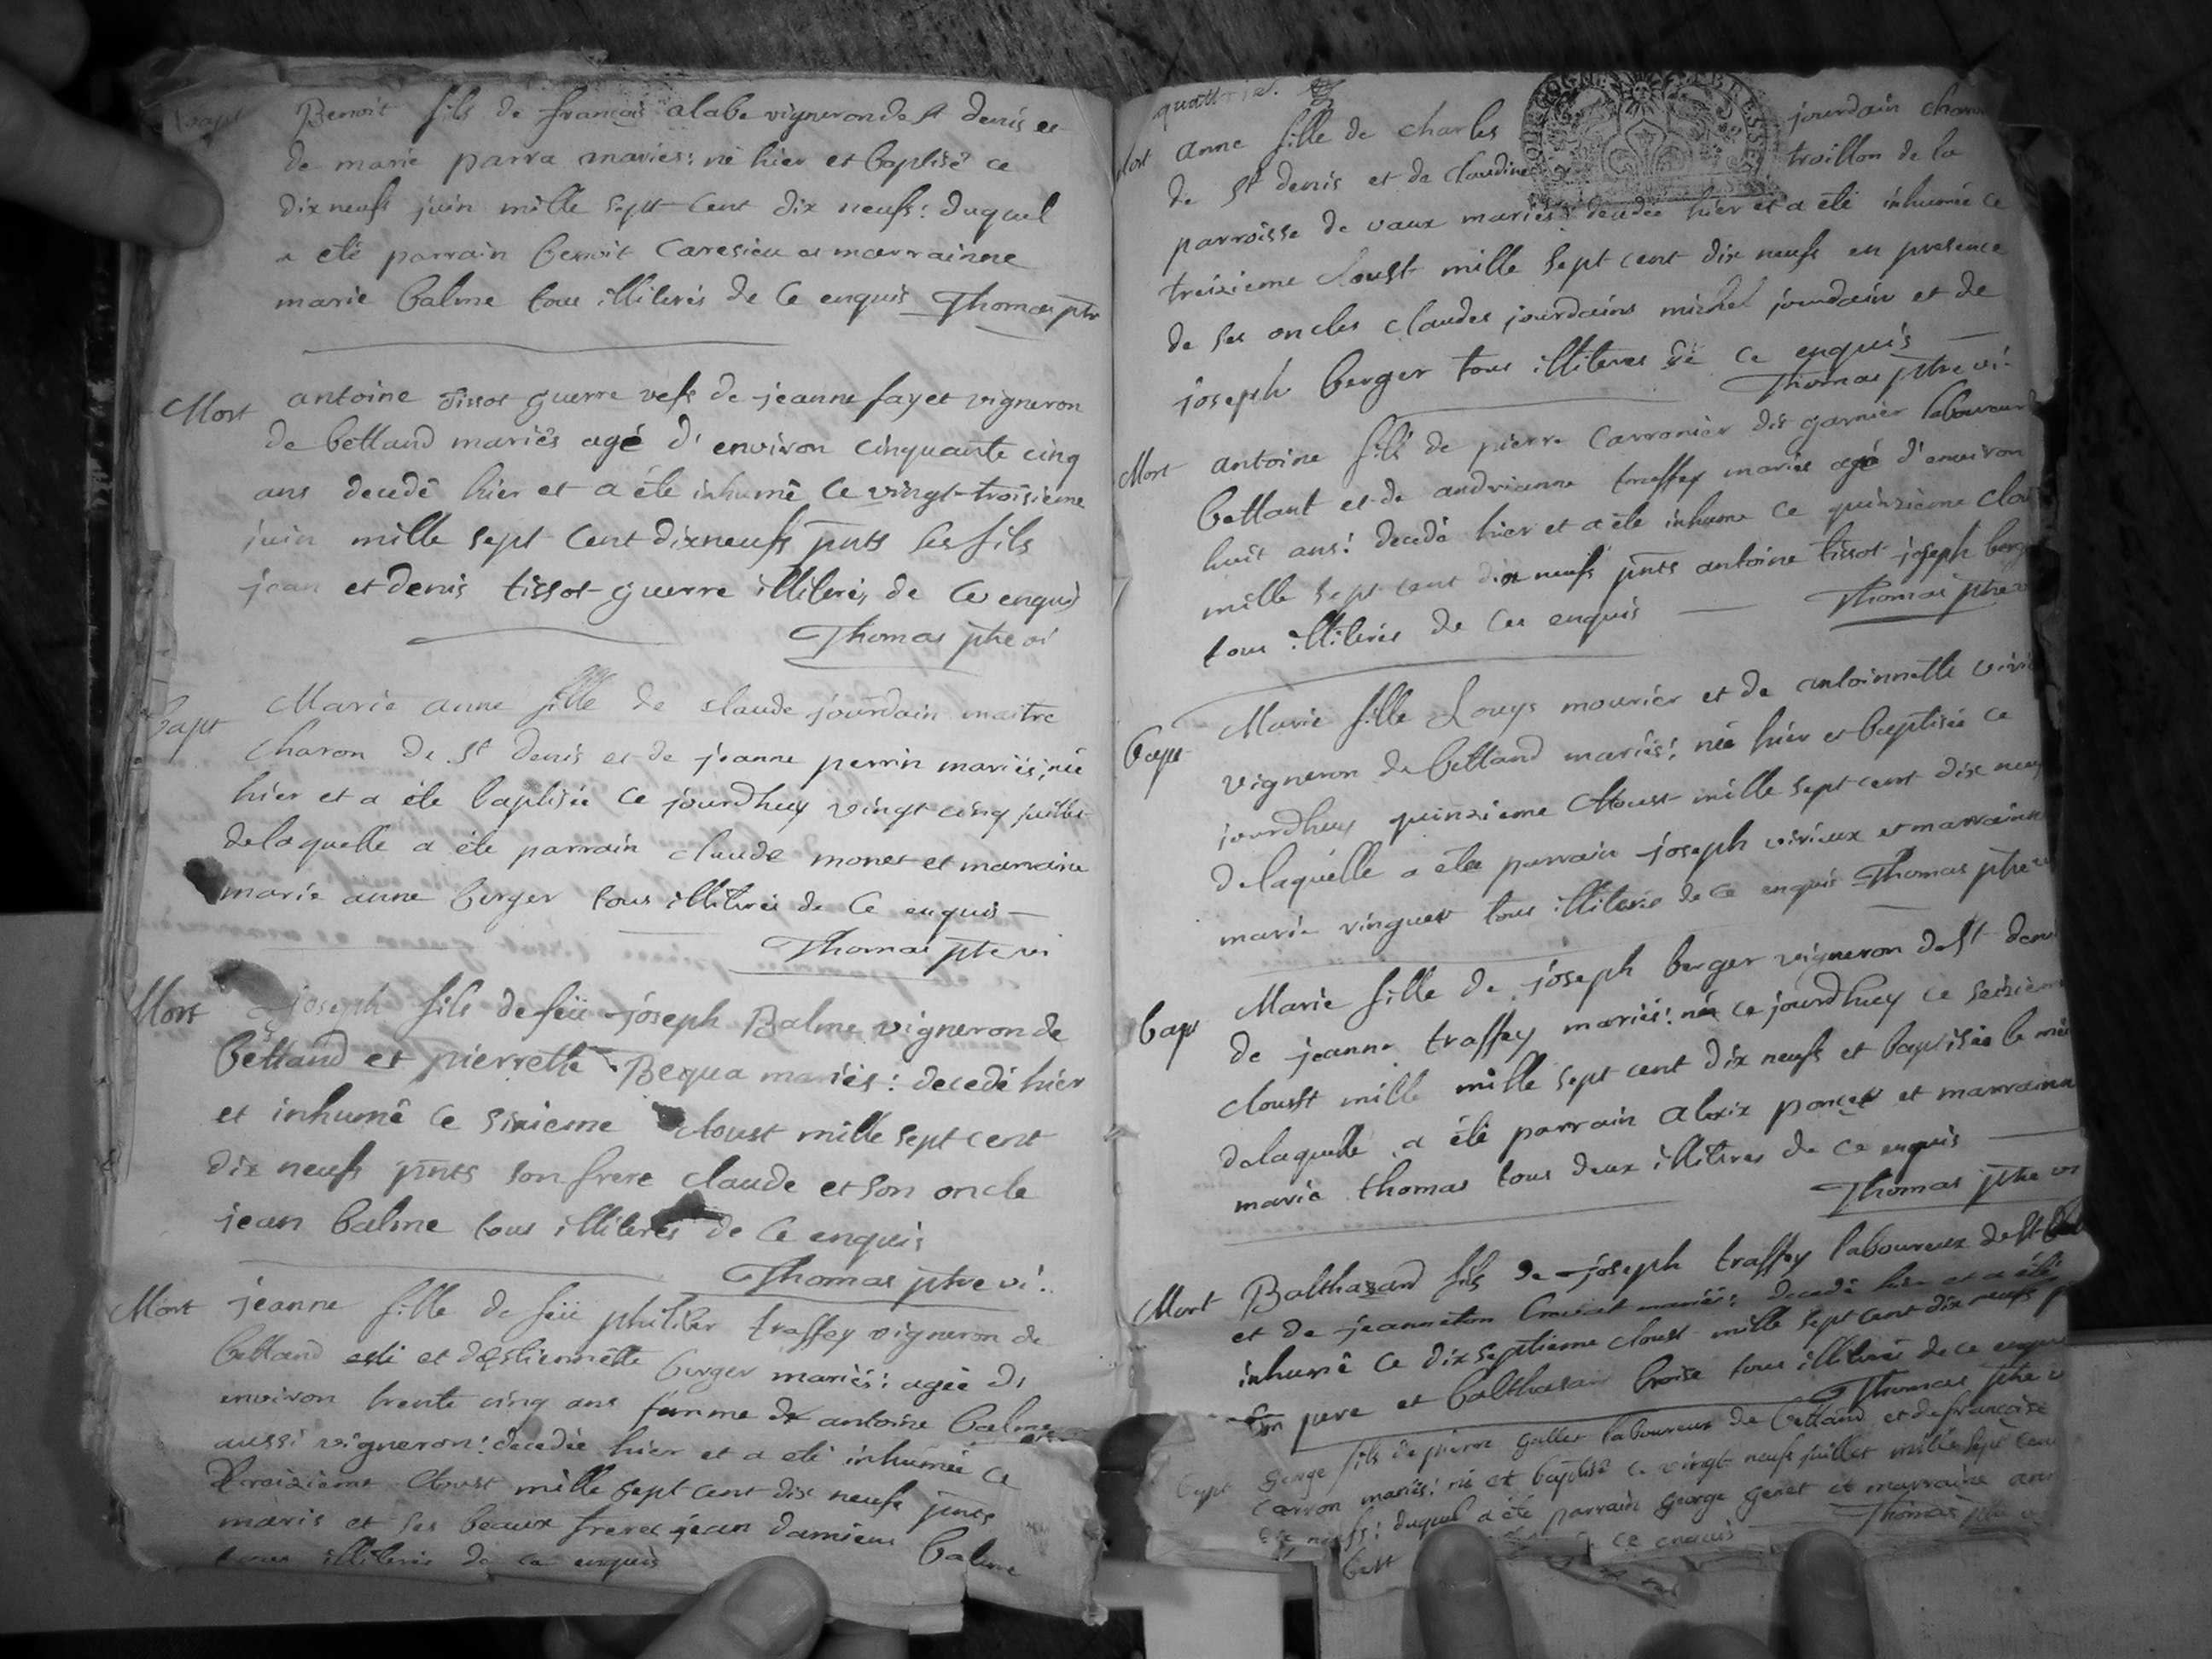 bapt
Benoit fils de françois alabe vigneron de st denis et
de marie parra mariés: né hier et baptisé ce
dix neufs juin mille sept cent dix neufs: duquel
a eté parrain benoit caresieu et marrainne
marie balme tous illiterés de ce enquis Thomas ptre
Mort
antoine tissot guerre vefs de jeanne fayet vigneron
de bettand mariés agé d'environ cinquante cinq
ans decedé hier et a été inhumé ce vingt-troisieme
juin mille sept cent dix neufs pnts ses fils
jean et denis tissot-guerre illiterés de ce enquis
Thomas ptre vi
bapt
Marie anne fille de claude jourdain maitre
charon de st denis et de jeanne perrin mariés; née
hier et a éte baptisée ce jourdhuy vingt cinq juillet
delaquelle a éte parrain claude monet et marraine
marie anne berger tous illiterés de ce enquis
Thomas ptre vi
Mort
joseph fils de feü joseph Balme vigneron de
bettand et pierrette Bequa mariés: decedé hier
et inhumé ce sixieme Aoust mille sept cent
dix neufs pnts son frere claude et son oncle
jean balme tous illiterés de ce enquis
Thomas ptre vi.
Mort
jeanne fille de feü philiber traffey vigneron de
bettand et destiennette berger mariés: agée d
environ trente cinq ans femme de antoine balme
aussi vigneron: decedée hier et a eté inhumée ce
treizieme Aoust mille sept cent dix neufs pnts
maris et ses beaux freres jean damien balme
tous illiterés de ce enquis
Mort
anne fille de charles jourdain charon
de st denis et de claudine troillon de la
parroisse de vaux mariés: decedée hier et a été inhumée ce
treizieme Aoust mille sept cent dix neufs en presence
de ses oncles claudes jourdains michel jourdain et de
joseph berger tous illiteres de ce enquis
Thomas ptre vi.
Mort
antoine fils de pierre carronier dit garnier laboureur
bettant et de andrianne traffey mariés agé d'environ
huit ans: decedé hier et a éte inhumé ce quinzieme Aou
mille sept cent dix neufs pnts antoine tissot joseph berg
tous illiterés de ce enquis Thomas ptre v
bapt
Marie fille Louys mourier et de antoinnette viri
vigneron de bettand mariés: née hier et baptisée ce
jourdhuy quinzieme Aoust mille sept cent dix neuf
delaquelle a éte parrain joseph virieux et marrainne
marie vinguet tous illiterés de ce enquis Thomas ptre v
bapt
Marie fille de joseph berger vigneron de st deni
de jeanne traffey mariés: née ce jourdhuy ce seizieme
Aoust mille mille sept cent dix neufs et baptisée le mê
delaquelle a été parrain Alexix poncet et marrainne
marie thomas tous deux illiteres de ce enquis
Thomas ptre vi
Mort
Balthazard fils de joseph traffey laboureux de st
et de jeanneton mariés: decedé hier et a été
inhumé ce dix septieme Aoust mille sept cent dix neufs p
son pere et balthasar broise tous illiterés de ce enquis
Thomas ptre v
bapt
George fils de pierre gallet laboureux de bettand et de françoise
carron mariés: né et baptisé ce vingt neufs juillet mille sept cen
dix neufs: duquel a été parrain george genet et marraine
ce enquis Thomas ptre v